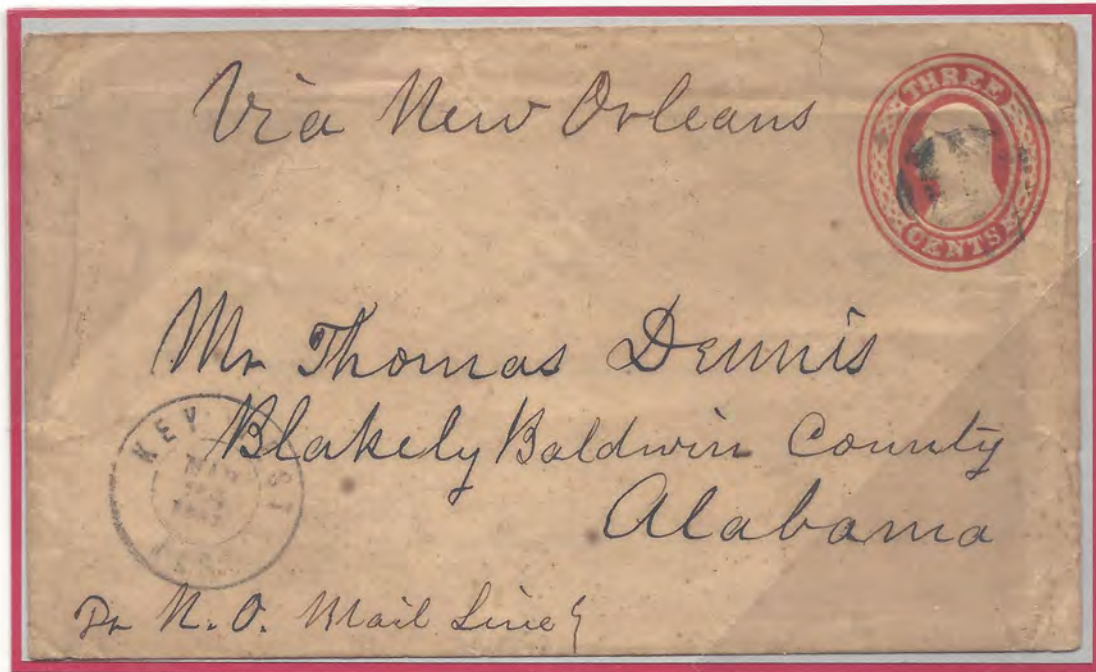 Via New Orleans
THREE
CENTS
Mr Thomas Dennis
Blakely Baldwin County
Alabama
KEY
MAR
Pr N. O. Mail Line